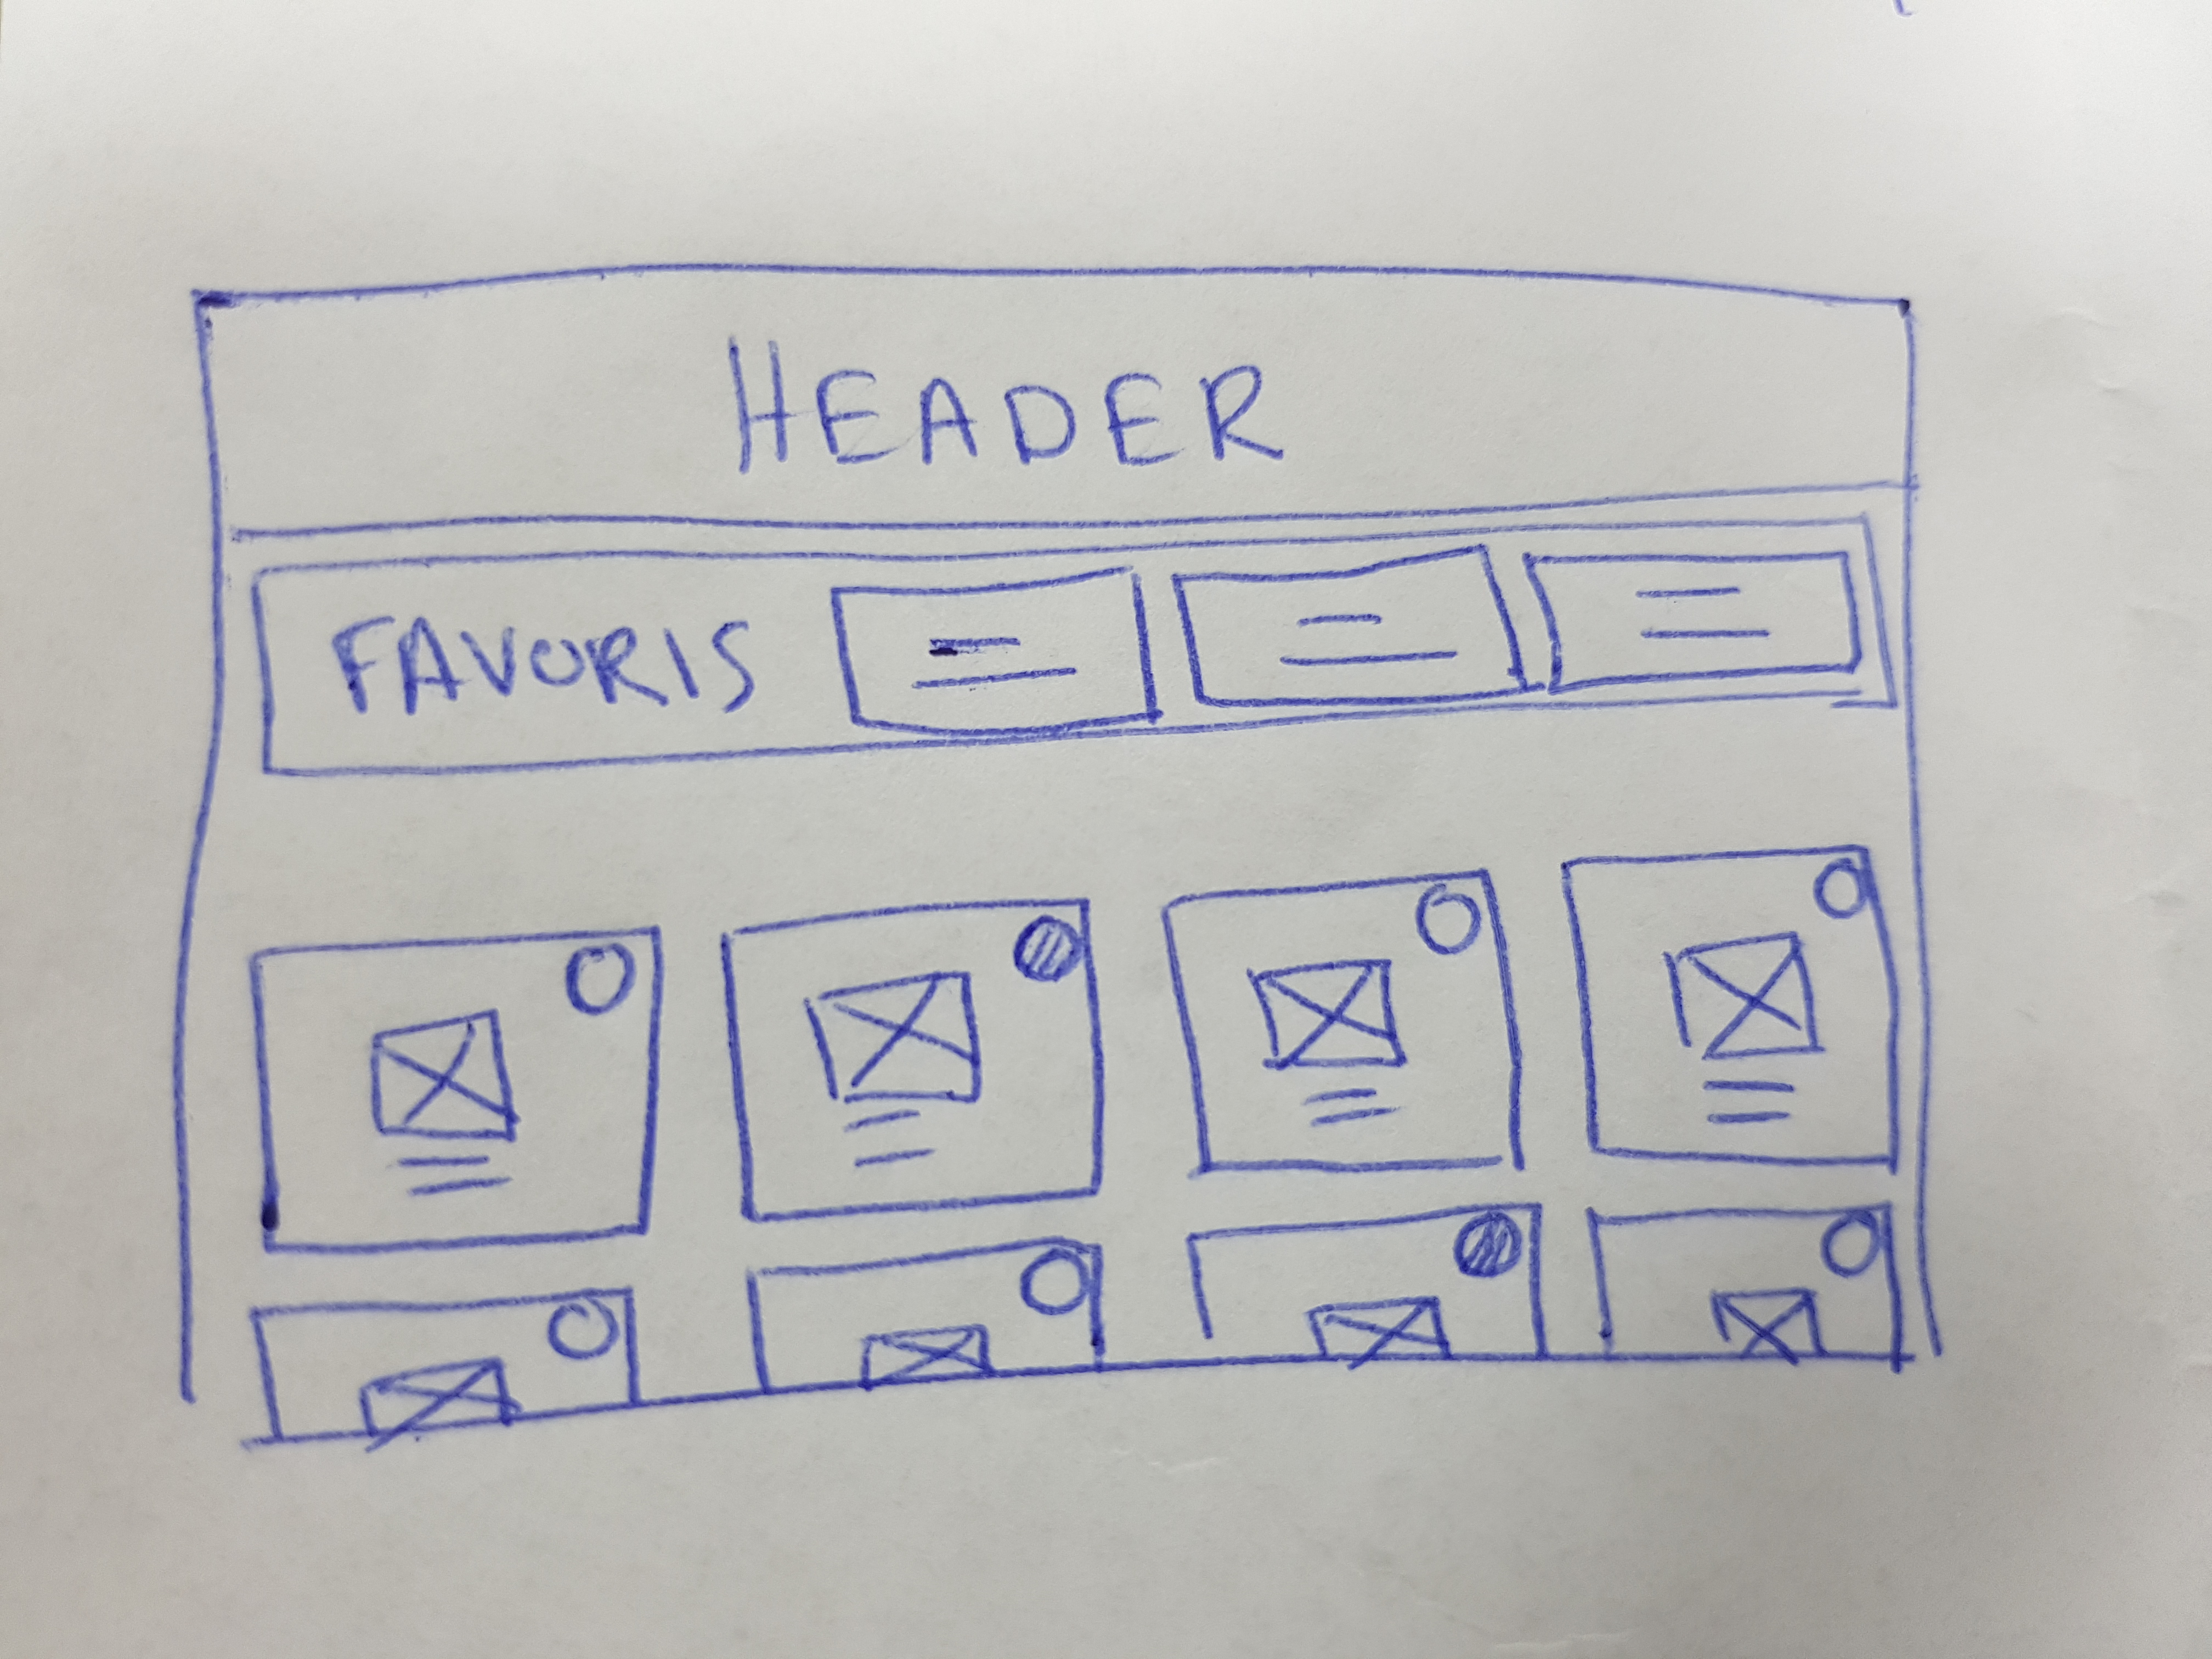 HEADER
FAVORIS